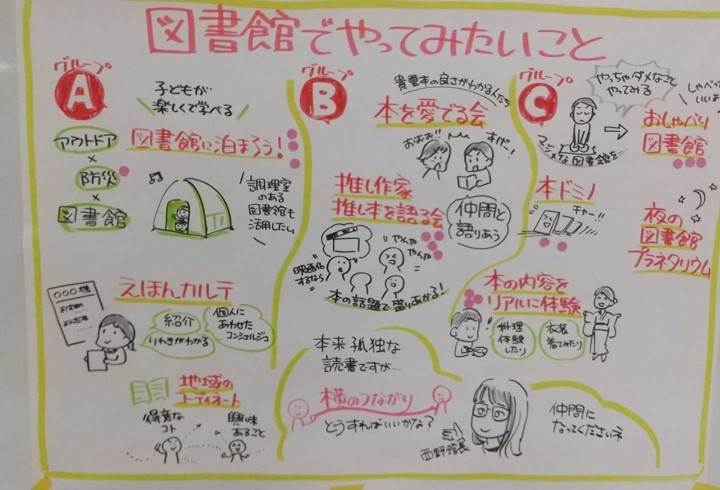 図書館でやってみたいこと
グループ
A
子どもが
楽しくて学べる
アウトドア
×
防災
×
図書館
図書館に泊まろう!
調理室
のある
図書館も
活用したい
えほんカルテ
○○○様
紹介
りれきがわかる
個人に
あわせた
コンシェルジュ
地域の
コーディネート
得意な
コト
興味
あること
グループ
B
貴重本の良さがわかる人たち
本を愛でる会
おおぉ!!
推し作家
推し本を語る会
仲間と
語りあう
映画化
するなら!
やんや
やんや
本の話題で盛りあがる!
本来孤独な
読書ですが…
横のつながり
どうすればいいかな?
西野館長
仲間に
なってくださいネ
グループ
C
やっちゃダメなこと
やってみる
マジメな図書館を…
しゃべって
いいよ
おしゃべり
図書館
本ドミノ
チャー!!
夜の
図書館
プラネタリウム
本の内容を
リアルに体験
料理
体験
したり
衣装
着てみたり